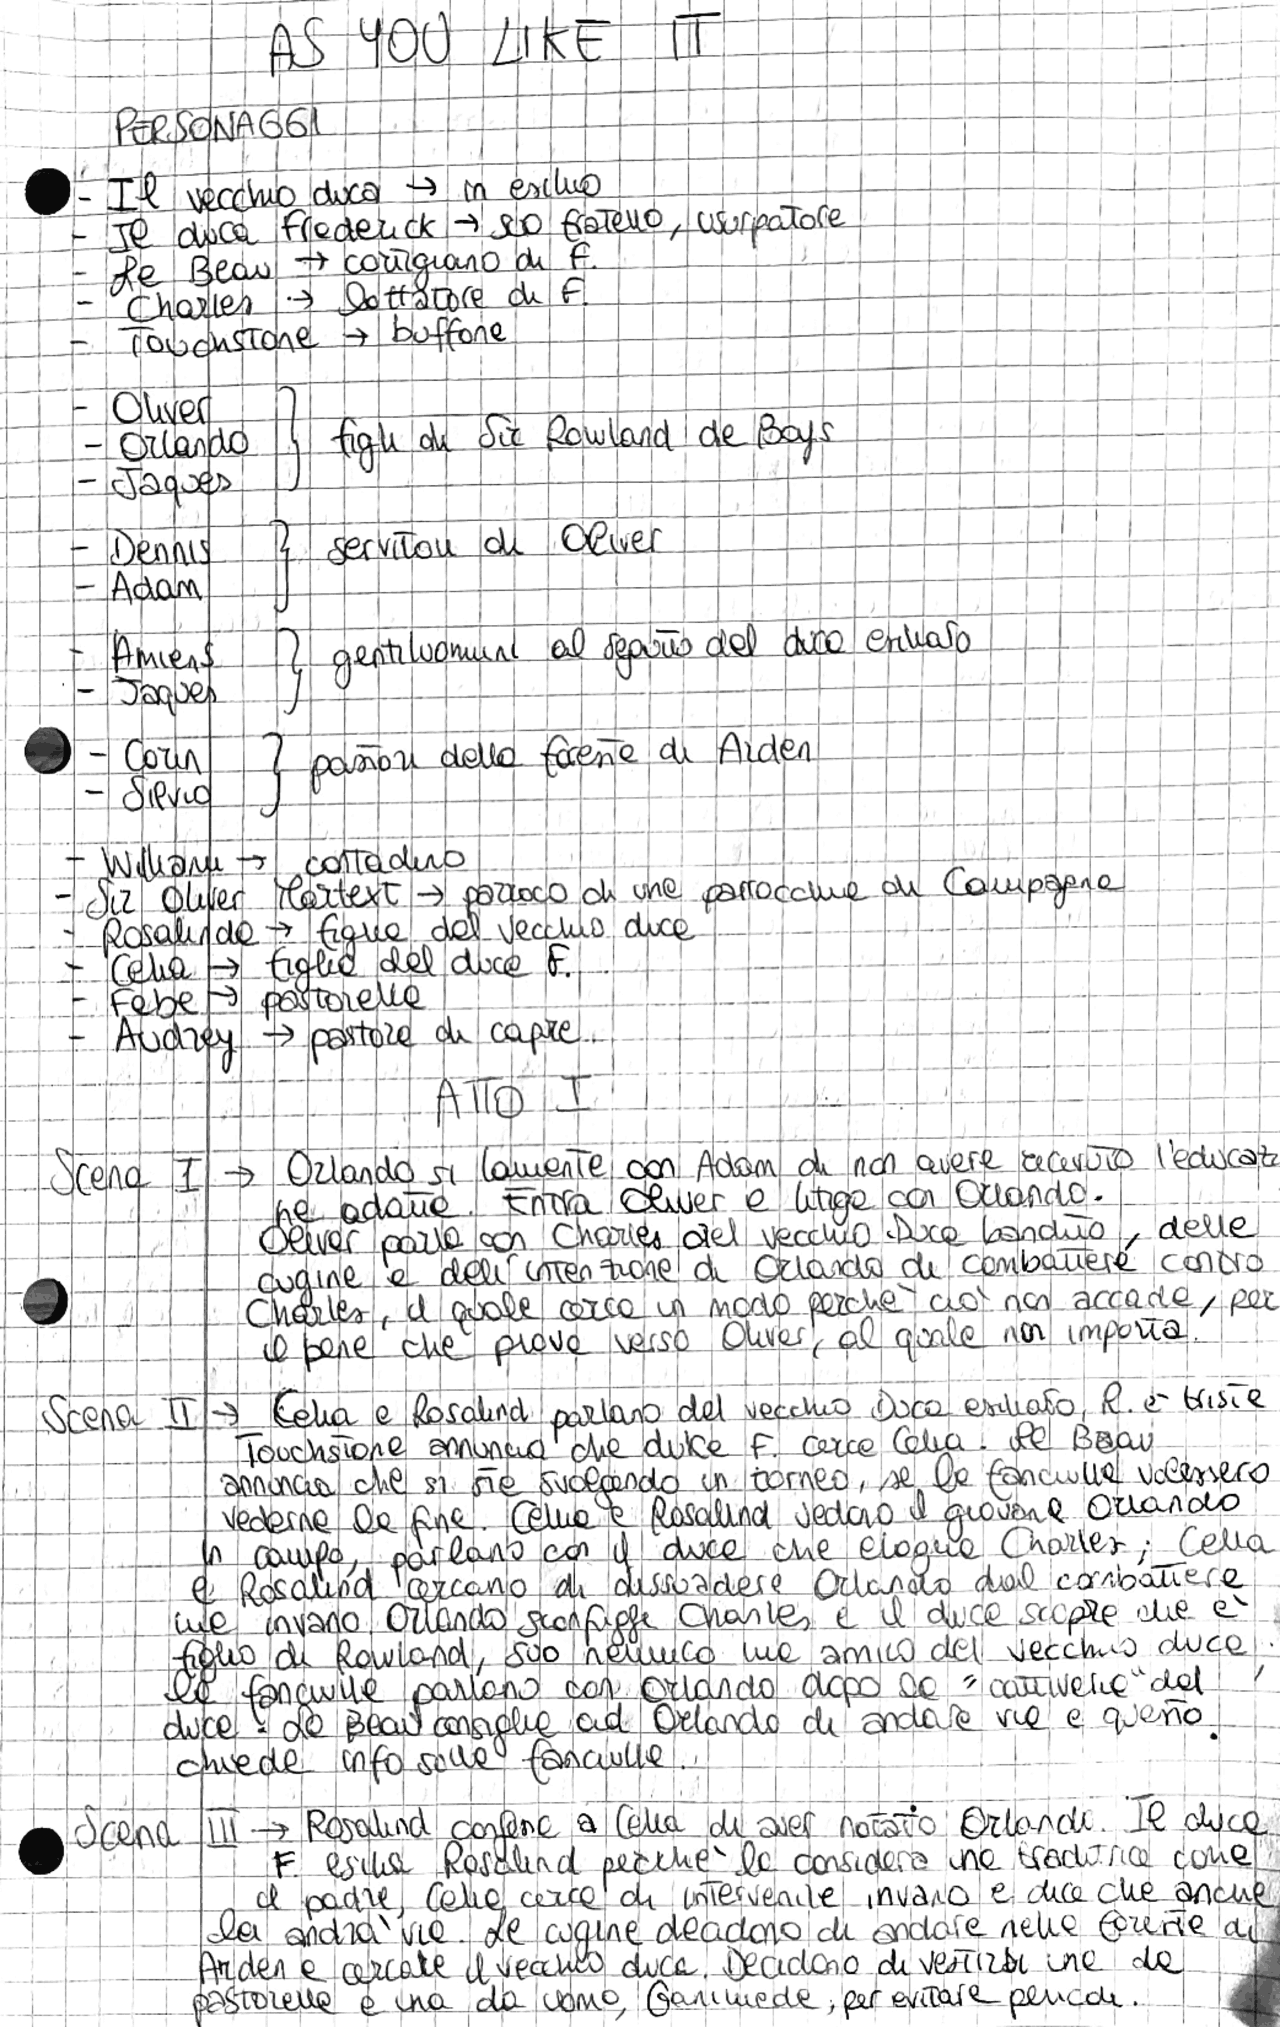 AS YOU LIKE IT
PERSONAGGI
- Il vecchio duca → in esilio
- Il duca Frederick → suo fratello, usurpatore
- Le Beau → cortigiano di F.
- Charles → lottatore di F.
- Touchstone → buffone
- Oliver
- Orlando } figli di Sir Rowland de Boys
- Jaques
- Dennis } servitori di Oliver
- Adam
- Amiens } gentiluomini al seguito del duca esiliato
- Jaques
- Corin } pastori della foresta di Arden
- Silvio
- William → contadino
- Sir Oliver Martext → parroco di una parrocchia di Campagna
- Rosalinda → figlia del vecchio duca
- Celia → figlia del duca F.
- Febe → pastorella
- Audrey → pastore di capre
ATTO I
Scena I → Orlando si lamenta con Adam di non avere ricevuto l'educazio
ne adatta. Entra Oliver e litiga con Orlando.
Oliver parla con Charles del vecchio Duca bandito, delle
cugine e dell'intenzione di Orlando di combattere contro
Charles, il quale cerca un modo perchè ciò non accada, per
il bene che prova verso Oliver, al quale non importa.
Scena II → Celia e Rosalind parlano del vecchio Duca esiliato, R. è triste
Touchstone annuncia che duke F. cerca Celia. Le Beau
annuncia che si sta svolgendo un torneo, se le fanciulle volessero
vederne la fine. Celia e Rosalind vedono il giovane Orlando
in campo, parlano con il duca che elogia Charles; Celia
e Rosalind cercano di dissuadere Orlando dal combattere
ma invano Orlando sconfigge Charles e il duca scopre che è
figlio di Rowland, suo nemico ma amico del vecchio duca.
Le fanciulle parlano con Orlando dopo le "cattiverie" del
duca. Le Beau consiglia ad Orlando di andare via e questo
chiede info sulle fanciulle.
Scena III → Rosalind confessa a Celia di aver notato Orlando. Il duca
F. esilia Rosalind perchè la considera una traditrice come
il padre, Celia cerca di intervenire invano e dice che anche
lei andrà via. Le cugine decidono di andare nella foresta di
Arden e cercare il vecchio duca. Decidono di vestirsi una da
pastorella e una da uomo, Ganimede, per evitare pericoli.